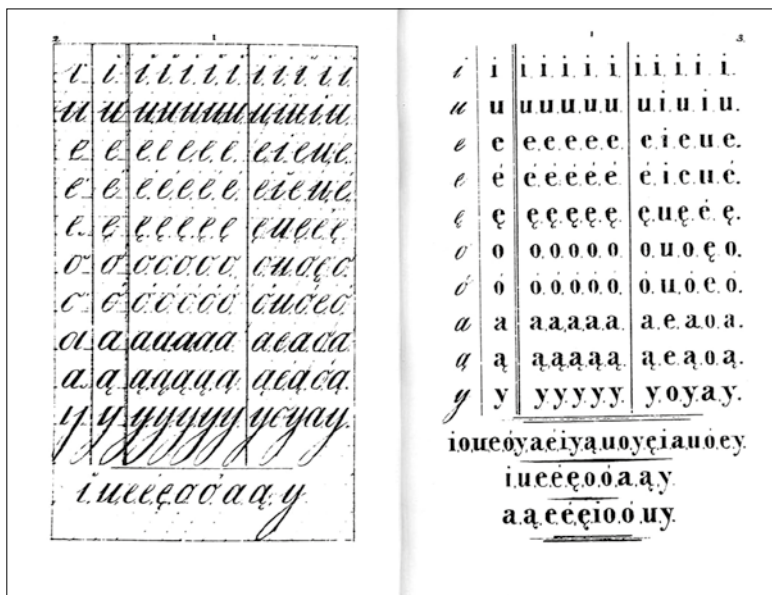 2. 1
i i i i i i i i i i i i
u u u u u u u u i u i u.
e e e. e e e e e i e u e.
é é é é é é é é i e u é.
ę ę ę ę ę ę ę ę u ę é ę
o o o o o o o u o ę o
ó ó ó ó ó ó ó ó u ó e ó
a a a a a a a a e a o a
ą ą ą ą ą ą ą ą e a o ą
y y y y y y y y o y a y.
i. u. e é. ę o ó a ą. y
1 3.
i i i. i. i. i. i. i. i. i. i. i.
u u u. u. u. u. u. u. i. u. i. u.
e e e. e. e. e. e. e. i. e. u. e.
é é é. é. é. é. é. é. i. e. u. é.
ę ę ę. ę. ę. ę. ę. ę. u. ę. é. ę.
o o o. o. o. o. o. o. u. o. ę. o.
ó ó ó. ó. ó. ó. ó. ó. u. ó. e. ó.
a a a. a. a. a. a. a. e. a. o. a.
ą ą ą. ą. ą. ą. ą. ą. e. a. o. ą.
y y y. y. y. y. y. y. o. y. a. y.
i.o.u.e.ó.y.a.é.i.y.ą.u.o.y.ę.i.a.u.ó.e.y.
i.u.e.é.ę.o.ó.a.ą.y.
a.ą.e.é.ę.i.o.ó.u.y.